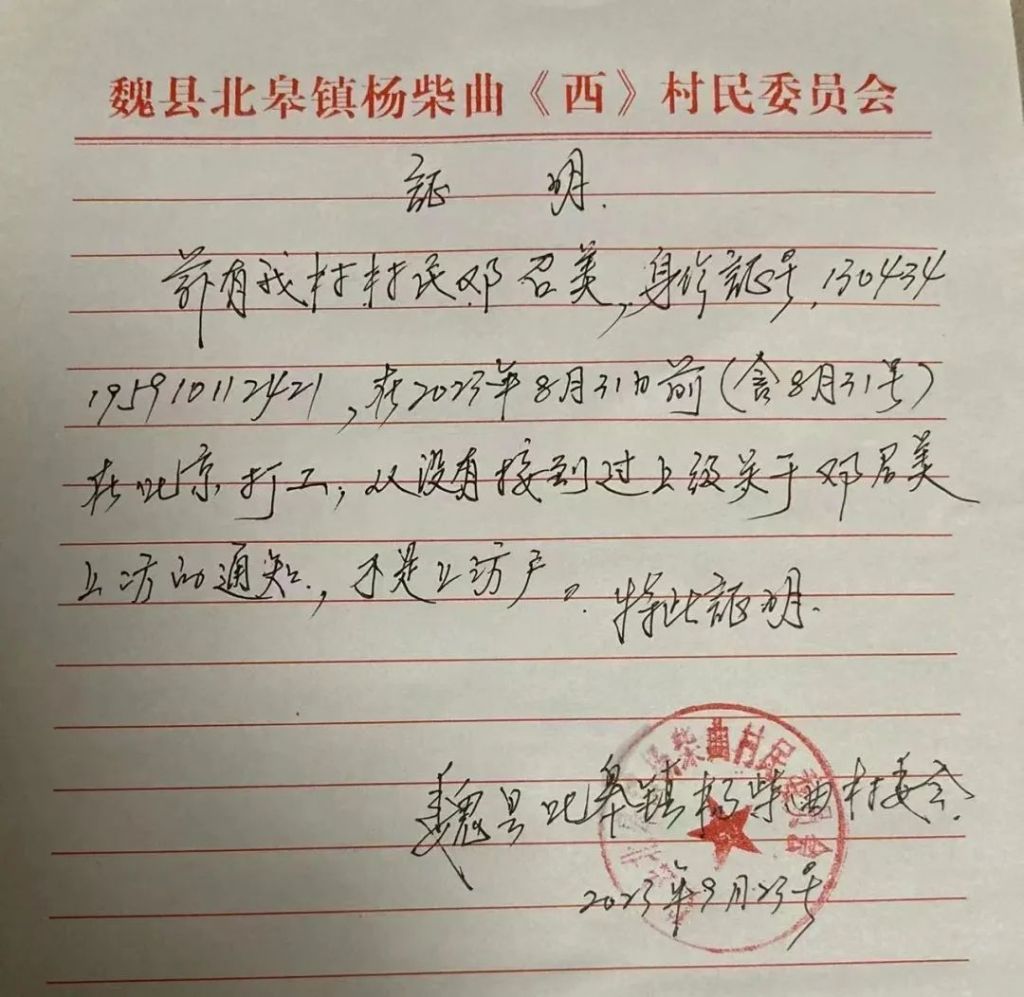 魏县北皋镇杨柴曲《西》村民委员会
証 明.
兹有我村村民邓召美,身份証号,130434
195910112421,在2023年8月31日前(含8月31号)
在北京打工,从没有接到过上级关于邓召美
上访的通知,不是上访户。特此証明.
魏县北皋镇杨柴曲村委会.
2023年9月23号
柴曲村民委员会